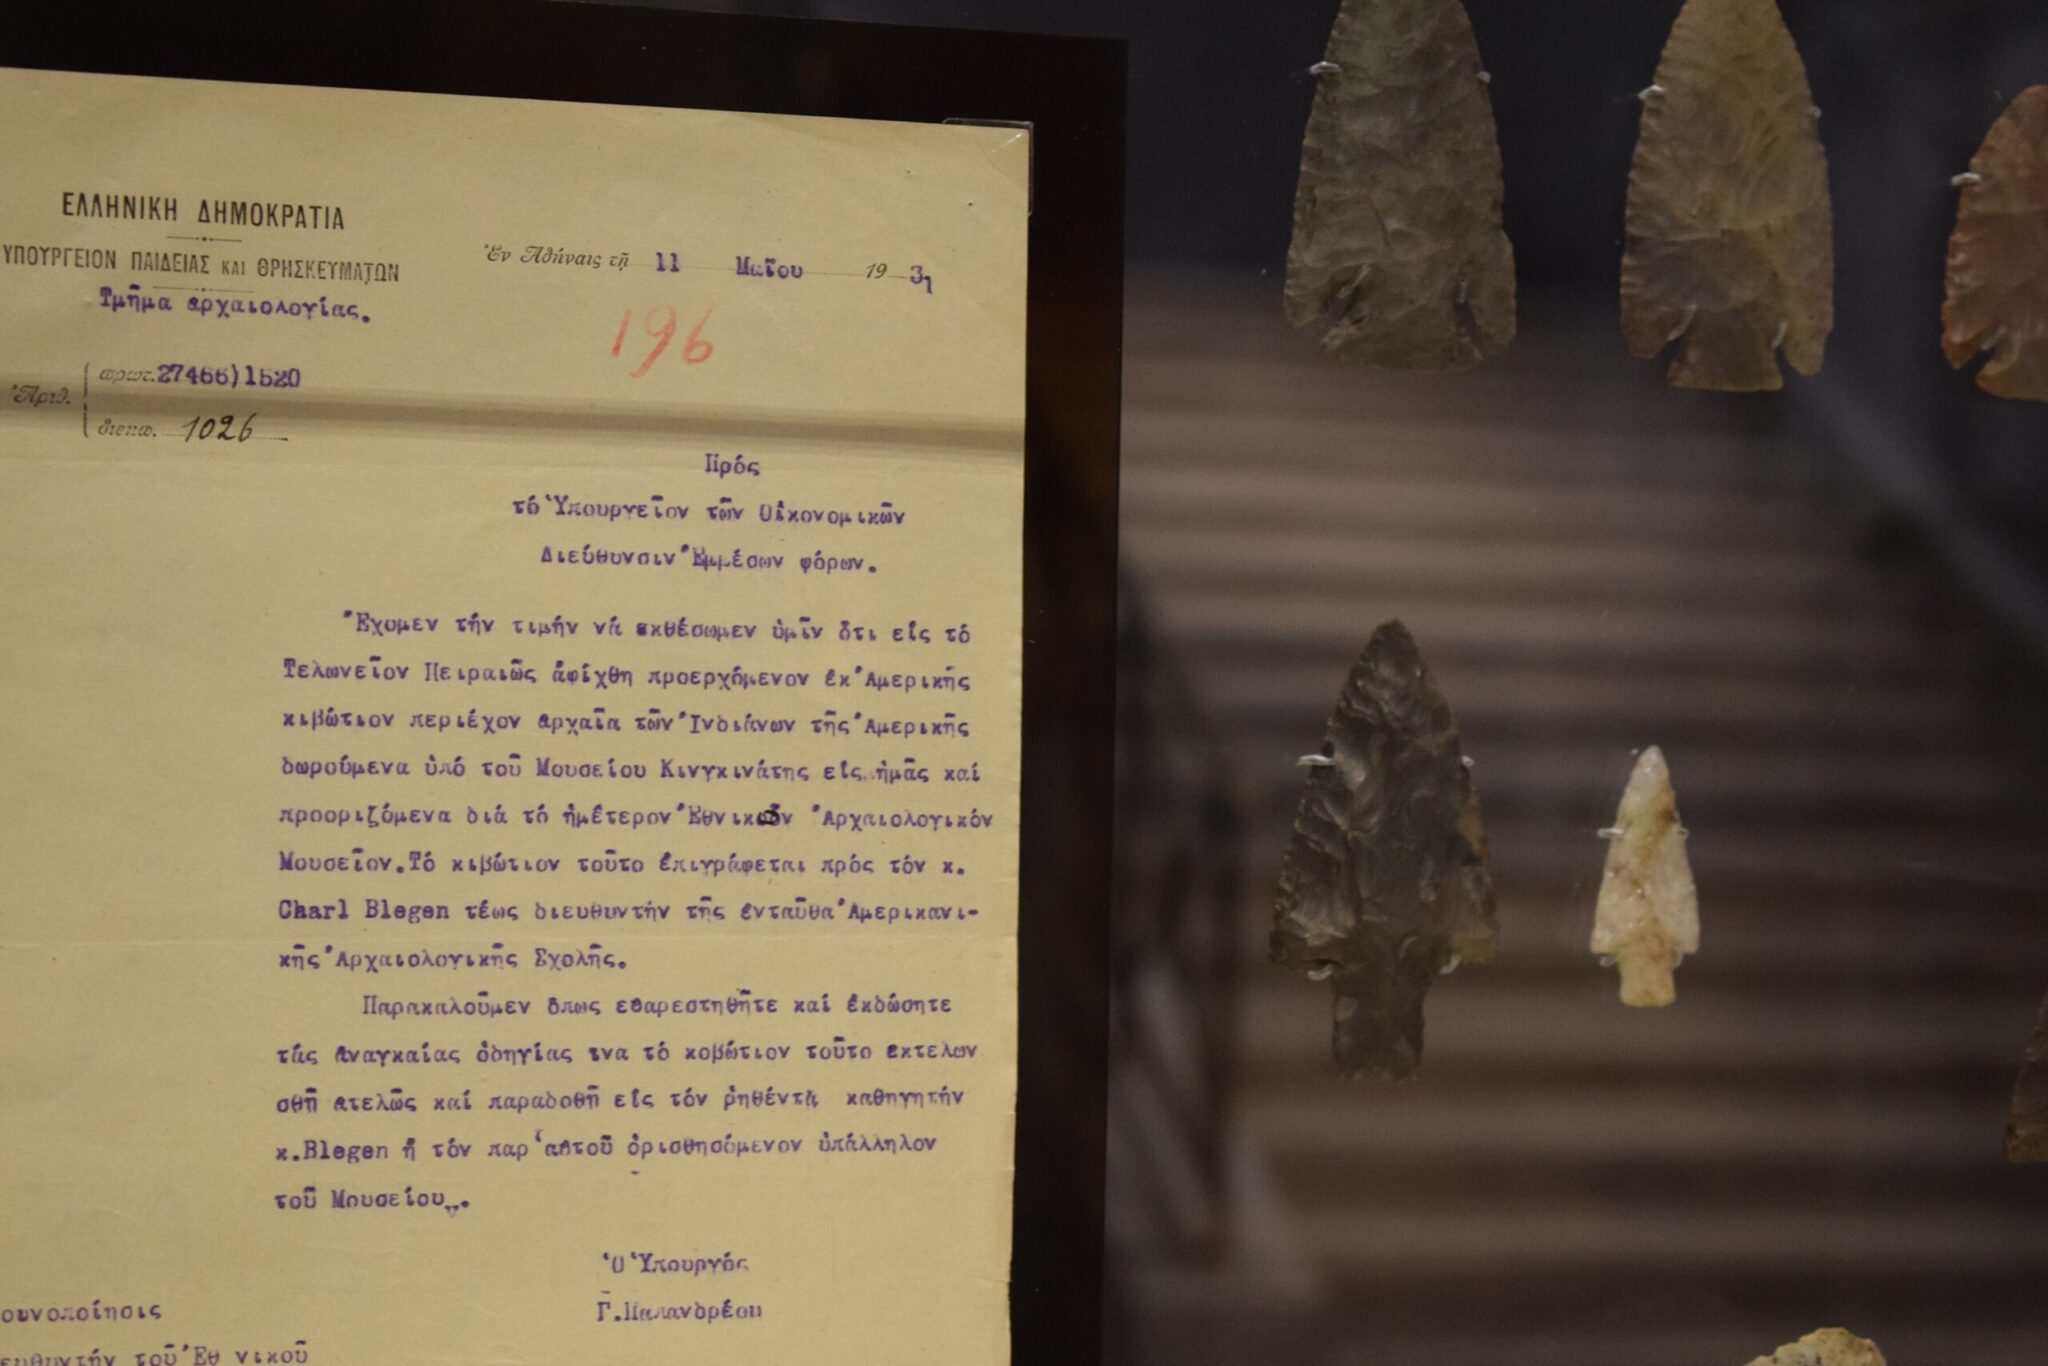 ΕΛΛΗΝΙΚΗ ΔΗΜΟΚΡΑΤΙΑ
ΥΠΟΥΡΓΕΙΟΝ ΠΑΙΔΕΙΑΣ ΚΑΙ ΘΡΗΣΚΕΥΜΑΤΩΝ
Τμῆμα αρχαιολογίας.
Ἐν Ἀθήναις τῇ 11 Μαΐου 1931
196
Ἀριθ. πρωτ. 27466)1520
διεκπ. 1026
Πρός
τό Ὑπουργεῖον τῶν Οἰκονομικῶν
Διεύθυνσιν Ἐμμέσων φόρων.
Ἔχομεν τήν τιμήν νά εκθέσωμεν ὑμῖν ὅτι εἰς τό
Τελωνεῖον Πειραιῶς ἀφίχθη προερχόμενον ἐκ Ἀμερικῆς
κιβώτιον περιέχον αρχαῖα τῶν Ἰνδιάνων τῆς Ἀμερικῆς
δωρούμενα ὑπό τοῦ Μουσείου Κινγκινάτης εἰς ἡμᾶς καί
προοριζόμενα διά τό ἡμέτερον Ἐθνικόν Ἀρχαιολογικόν
Μουσεῖον. Τό κιβώτιον τοῦτο ἐπιγράφεται πρός τόν κ.
Charl Blegen τέως διευθυντήν τῆς ἐνταῦθα Ἀμερικανι-
κῆς Ἀρχαιολογικῆς Σχολῆς.
Παρακαλοῦμεν ὅπως εὐαρεστηθῆτε καί ἐκδώσητε
τάς αναγκαίας ὁδηγίας ινα τό κοβώτιον τοῦτο εκτελων
σθῆ ατελῶς καί παραδοθῆ εἰς τόν ρηθέντα καθηγητήν
κ.Blegen ἤ τόν παρ' αὐτοῦ ὁρισθησόμενον ὑπάλληλον
τοῦ Μουσείου.
Ὁ Ὑπουργός
Γ.Παπανδρέου
οινοποίησις
ευθυντήν τοῦ Ἐθνικοῦ